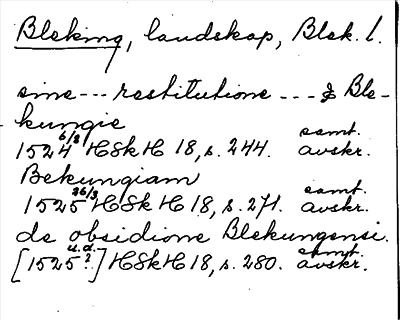 Bleking, landskap, Blek. l.
sine --- restitutione --- & Ble-
kungie
1524 6/8 HSH 18, s. 244. samt. avskr.
Bekungiam
1525 26/3 HSH 18, s. 271. samt. avskr.
de obsidione Blekungensi.
[1525 u.d.?] HSH 18, s. 280. samt. avskr.